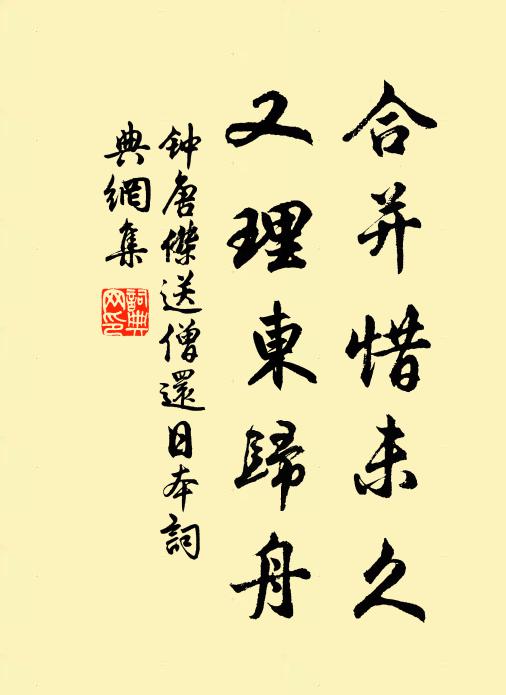 合并惜未久
又理東歸舟
钟唐傑送僧還日本詞
典網集
詞典网印